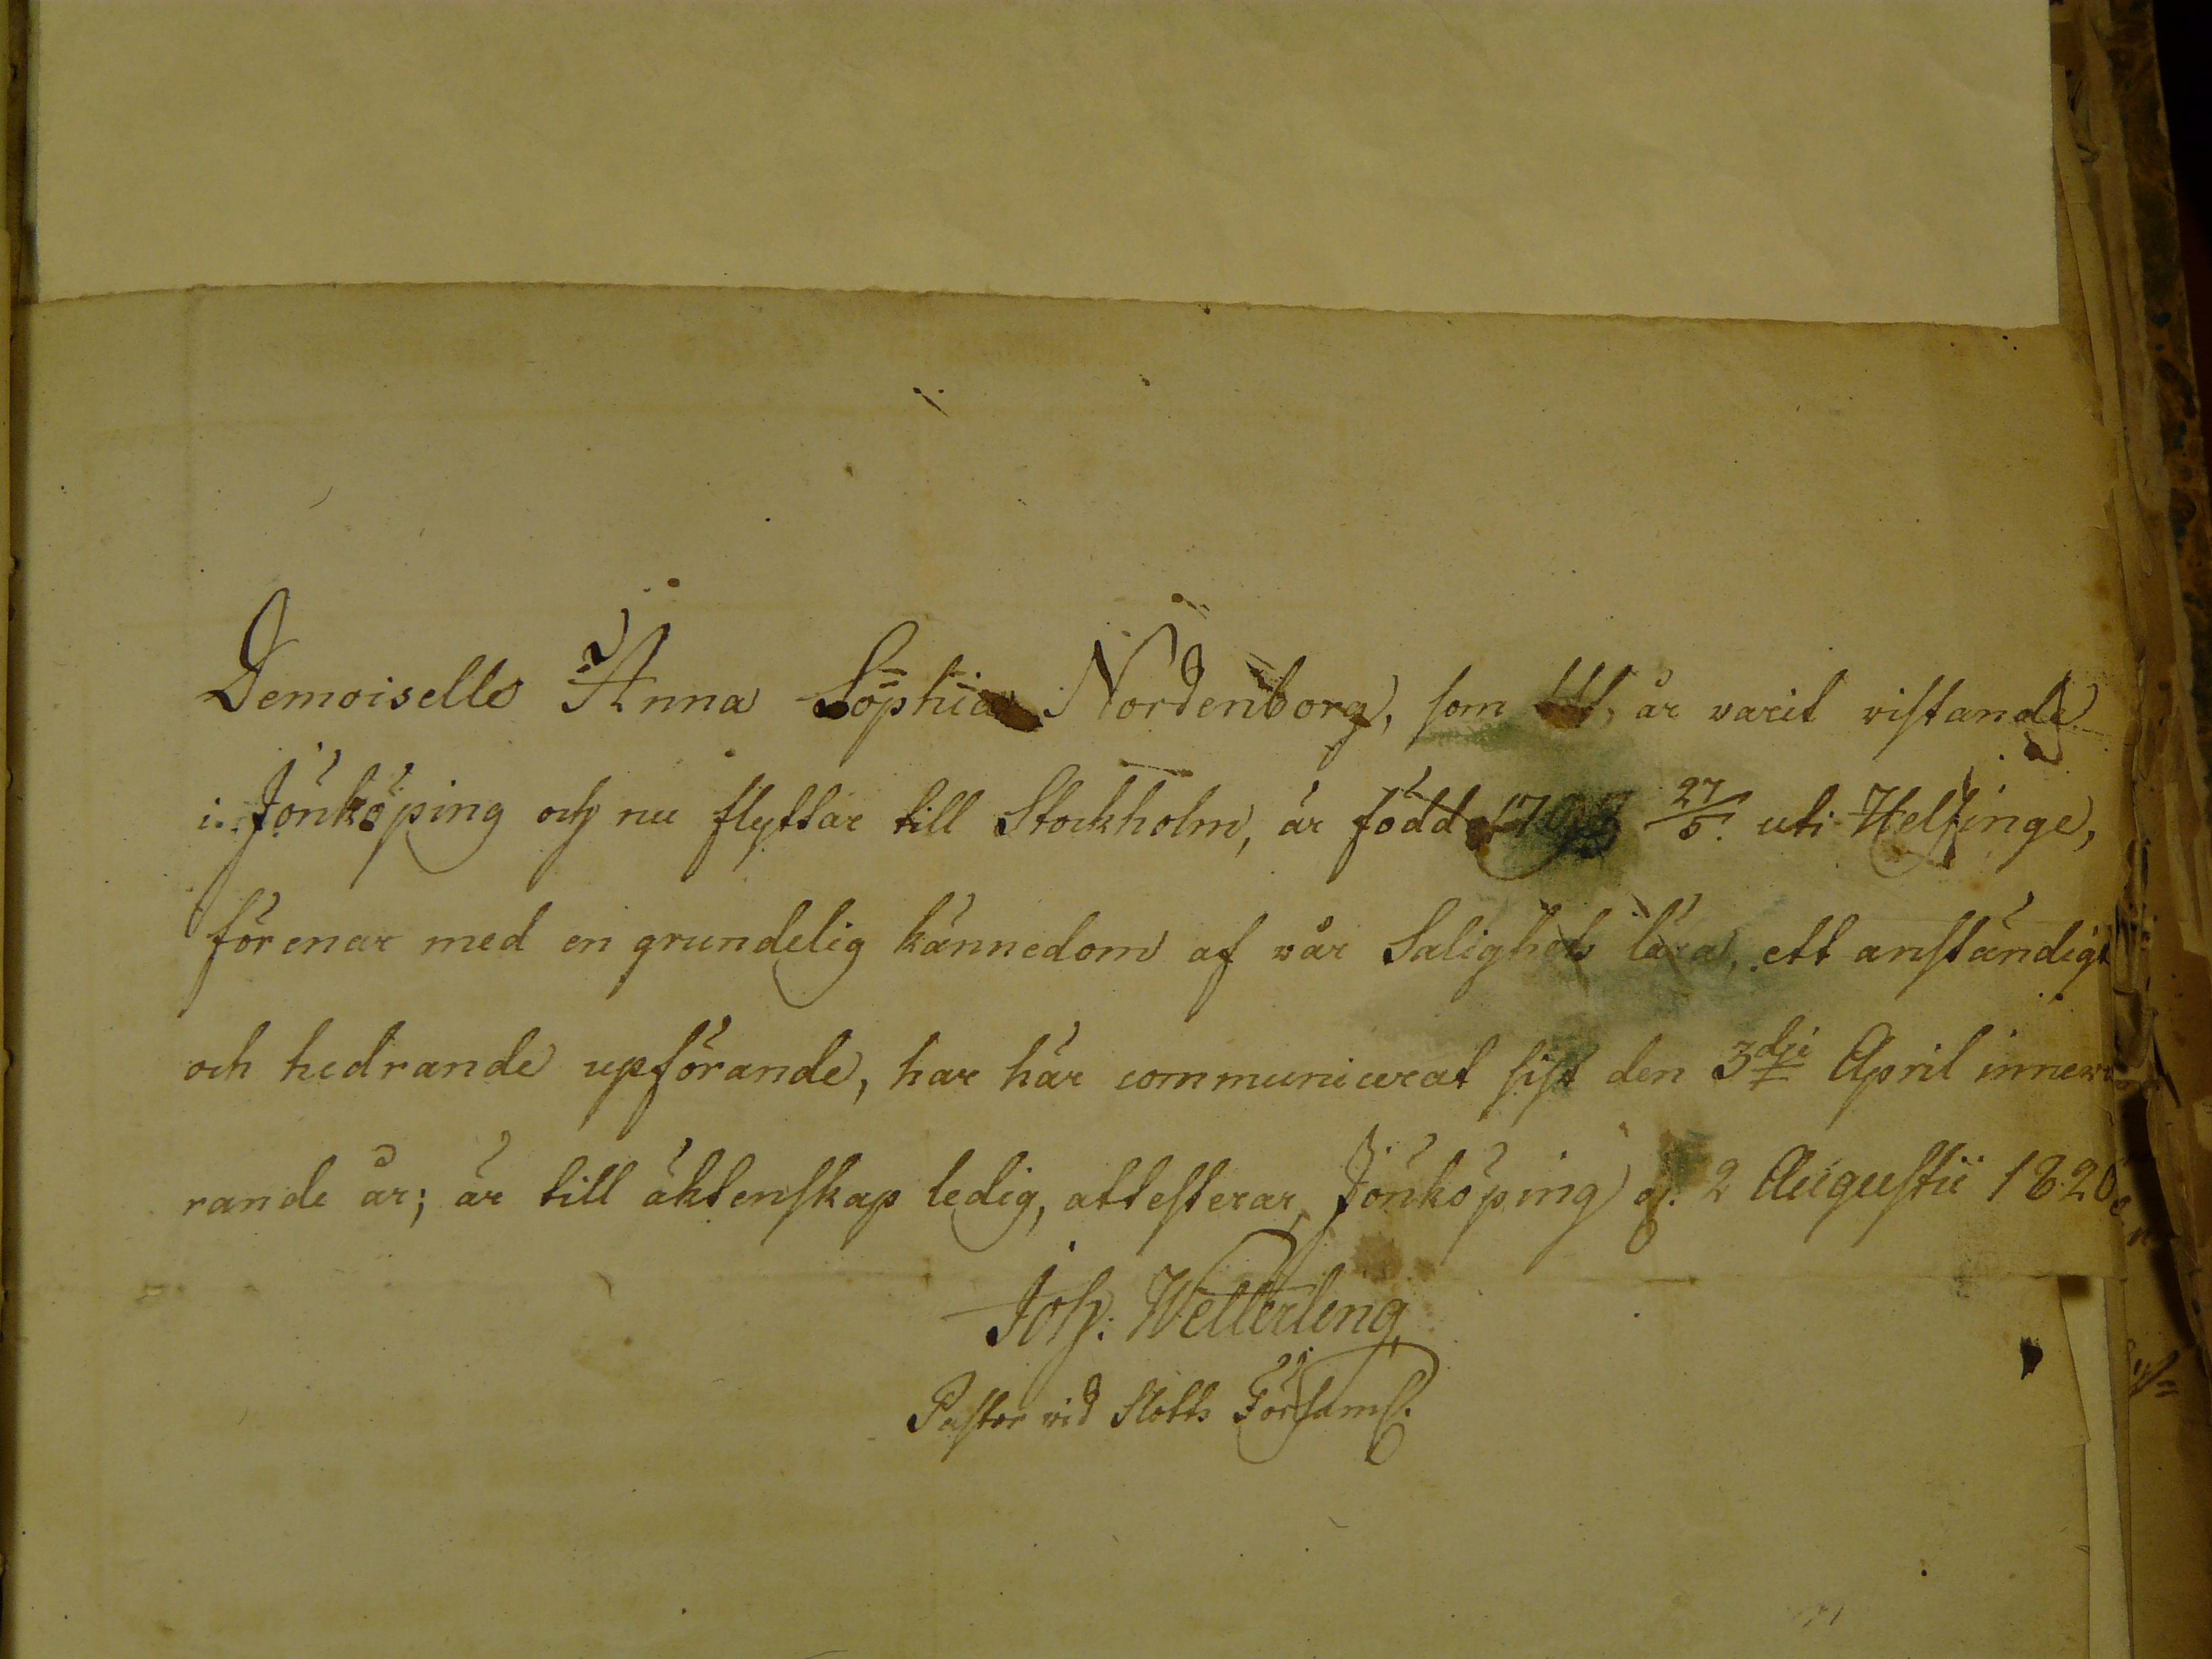 Demoiselle Anna Sophia Nordenborg, som ett år varit vistande
i Jönköping och nu flyttar till Stockholm, är född 27/5 uti Helsinge,
förenar med en grundelig kännedom af vår Salighets lära, ett anständigt
och hedrande upförande, har här communicerat sist den 3dje April innewa
rande år; är till äktenskap ledig, attesterar, Jönköping d. 2 Augustii 1820
Joh: Wetterling
Pastor vid Slotts Församl.